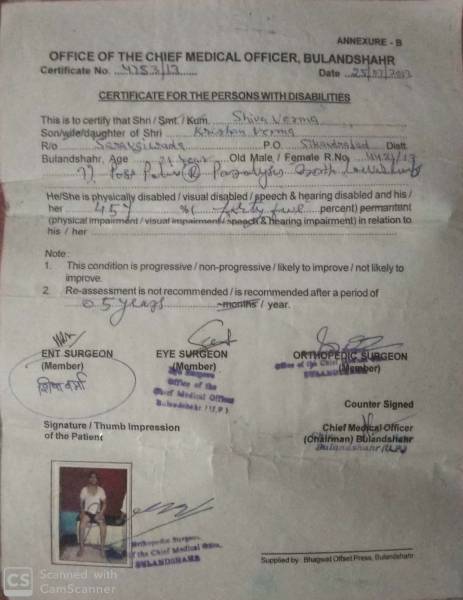 ANNEXURE - B
OFFICE OF THE CHIEF MEDICAL OFFICER, BULANDSHAHR
Certificate No. 4253/13 Date 25/07/2013
CERTIFICATE FOR THE PERSONS WITH DISABILITIES
This is to certify that Shri / Smt. / Kum. Shiva Verma
Son/wife/daughter of Shri Krishan Verma
R/o P.O. Sikandrabad Distt.
Bulandshahr, Age 21 Year Old Male / Female R.No.
Post Polio Paralysis Both
He/She is physically disabled / visual disabled / speech & hearing disabled and his /
her 45% %( forty five percent) permantent
(physical impairment / visual impairment / speech & hearing impairment) in relation to
his / her
Note :
1. This condition is progressive / non-progressive / likely to improve / not likely to
improve.
2. Re-assessment is not recommended / is recommended after a period of
05 years months / year.
ENT SURGEON EYE SURGEON ORTHOPEDIC SURGEON
(Member) (Member) (Member)
Eye Surgeon
Office of the
Chief Medical Officer
Bulandshahr (U.P.)
Office of the Chief Medical
BULANDSHAHR
शिवा वर्मा
Counter Signed
Signature / Thumb Impression
of the Patient
Chief Medical Officer
(Chairman) Bulandshahr
Bulandshahr (U.P.)
Orthopedic Surgeon
of the Chief Medical
BULANDSHAHR
Supplied by : Bhagwat Offset Press, Bulandshahr
CS Scanned with
CamScanner